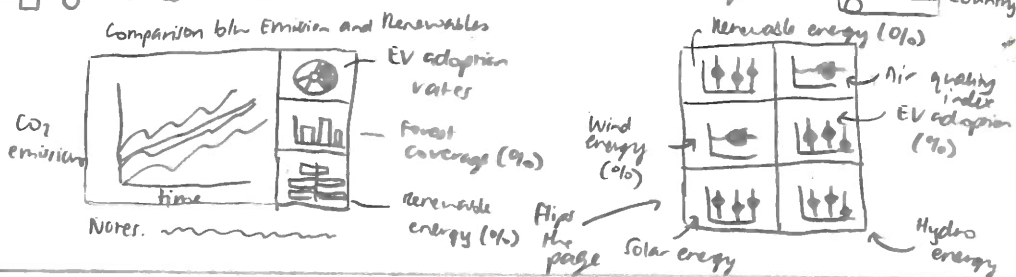 Country
Comparison b/w Emission and Renewables
EV adoption
rates
CO2
emissions
Forest
coverage (%)
time
Renewable
energy (%)
Notes.
Renewable energy (%)
Air quality
index
EV adoption
(%)
Wind
energy
(%)
Flips
the
page
Solar energy
Hydro
energy